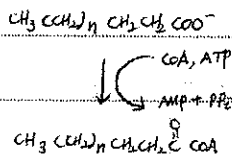 CH3 (CH2)n CH2 CH2 COO⁻
CoA, ATP
AMP + PPi
O
CH3 (CH2)n CH2CH2 C CoA